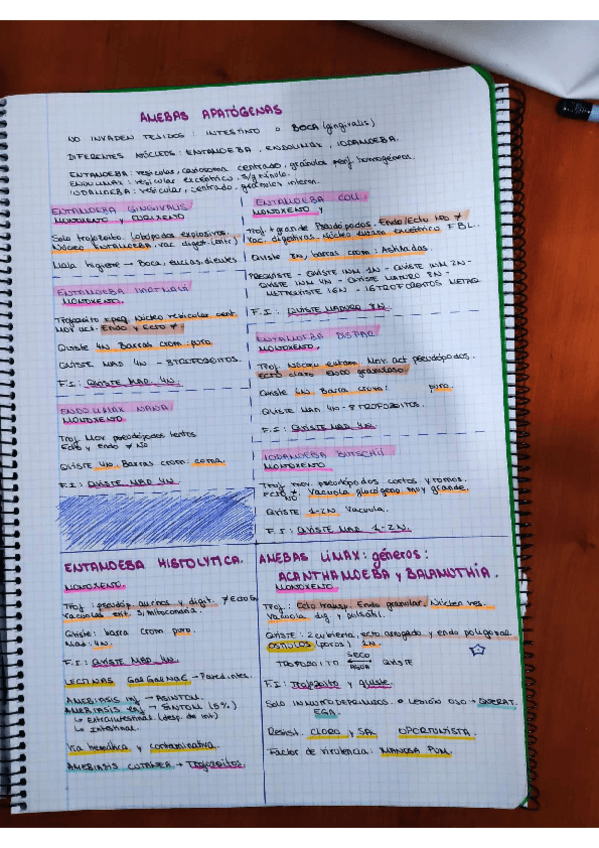 AMEBAS APATÓGENAS
NO INVADEN TEJIDOS: INTESTINO o BOCA (gingivalis)
DIFERENTES NÚCLEOS: ENTAMOEBA, ENDOLIMAX, IODAMOEBA.
ENTAMOEBA: vesicular, cariosoma centrado, gránulos perif homogéneos.
ENDOLIMAX: vesicular excéntrico. s/gránulo.
IODAMOEBA: vesicular, centrado, gránulos interm.
ENTAMOEBA GINGIVALIS
MONOXENO y
Solo trofozoíto (lobópodos explosivos,
Núcleo ENTAMOEBA, vac. digest. cont.)
Mala higiene → Boca, encías, dientes
ENTAMOEBA HARTMANI
MONOXENO.
Trofozoíto + peq. Núcleo vesicular cent.
Mov act. Endo y Ecto ≠
Quiste 4N Barras crom: puro
QUISTE MAD 4N - 8 TROFOZOITOS.
F.I: QUISTE MAD. 4N.
ENDOLIMAX NANA
MONOXENO.
Trof Mov pseudópodos lentos
Ecto y Endo ≠ NO
Quiste 4N. Barras crom: coma.
F.I: QUISTE MAD 4N.
ENTAMOEBA COLI
MONOXENO
Trof + grande Pseudópodos. Endo/Ecto NO ≠
Vac. digestivas. Núcleo excéntrico FBL.
Quiste 8N, barras crom: Astilladas.
PREQUISTE - QUISTE INM 1N - QUISTE INM 2N -
QUISTE INM 4N - QUISTE MADURO 8N -
METAQUISTE 16N - 16 TROFOZOITOS METAQ
F.I: QUISTE MADURO 8N.
ENTAMOEBA DISPAR
MONOXENO.
Trof. Núcleo entam. Mov. act pseudópodos.
Ecto claro Endo granuloso
Quiste 4N. Barra crom: puro.
QUISTE MAD 4N - 8 TROFOZOITOS.
F.I: QUISTE MAD 4N.
IODAMOEBA BUTSCHII
MONOXENO
Trof mov. pseudópodos cortos y romos.
Ecto ≠ NO. Vacuola glucógeno muy grande.
QUISTE 1-2N Vacuola.
F.I: QUISTE MAD 1-2N.
ENTAMOEBA HISTOLYTICA.
MONOXENO.
Trof: pseudóp. anchos y digit. ≠ Ecto
Vacuolas erit. S/mitocondria.
Quiste: barra crom puro.
Mad. 4N.
F.I: QUISTE MAD 4N.
LECTINAS Gal GalNAC - Pared intes.
AMEBIASIS inf → ASINTOM.
AMEBIASIS enf → SINTOM (5%)
↳ Extraintestinal (desp. de int)
↳ Intestinal.
Vía hemática y contaminativa.
AMEBIASIS CUTÁNEA → Trofozoitos.
AMEBAS LIMAX: géneros:
ACANTHAMOEBA y BALAMUTHIA.
MONOXENO
Trof: Ecto transp. Endo granular. Núcleo ves.
Vacuola dig y pulsátil.
QUISTE: 2 cubierta, ecto arrugado y endo poligonal
OSTIOLOS (poros) 1N.
TROFOZOITO SECO AGUA QUISTE
F.I: Trofozoíto y quiste.
SOLO INMUNODEPRIMIDOS. o LESIÓN OJO → QUERAT.
EGA.
Resist. CLORO y SPA OPORTUNISTA.
Factor de virulencia: MANOSA